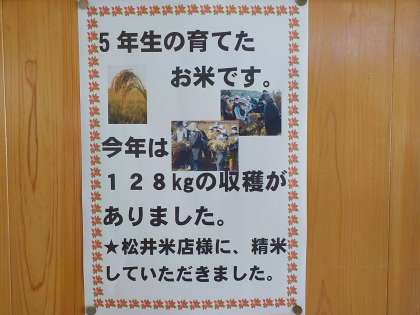 5年生の育てた
お米です。
今年は
128㎏の収穫が
ありました。
★松井米店様に、精米
していただきました。